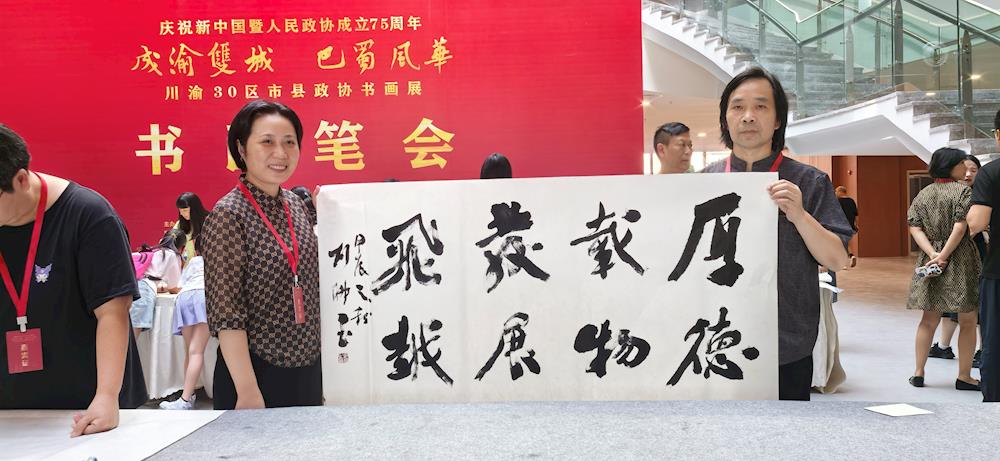 庆祝新中国暨人民政协成立75周年
成渝雙城 巴蜀風華
川渝30区市县政协书画展
书画笔会
厚德
載物
發展
飛越
甲辰之秋
嘉宾证